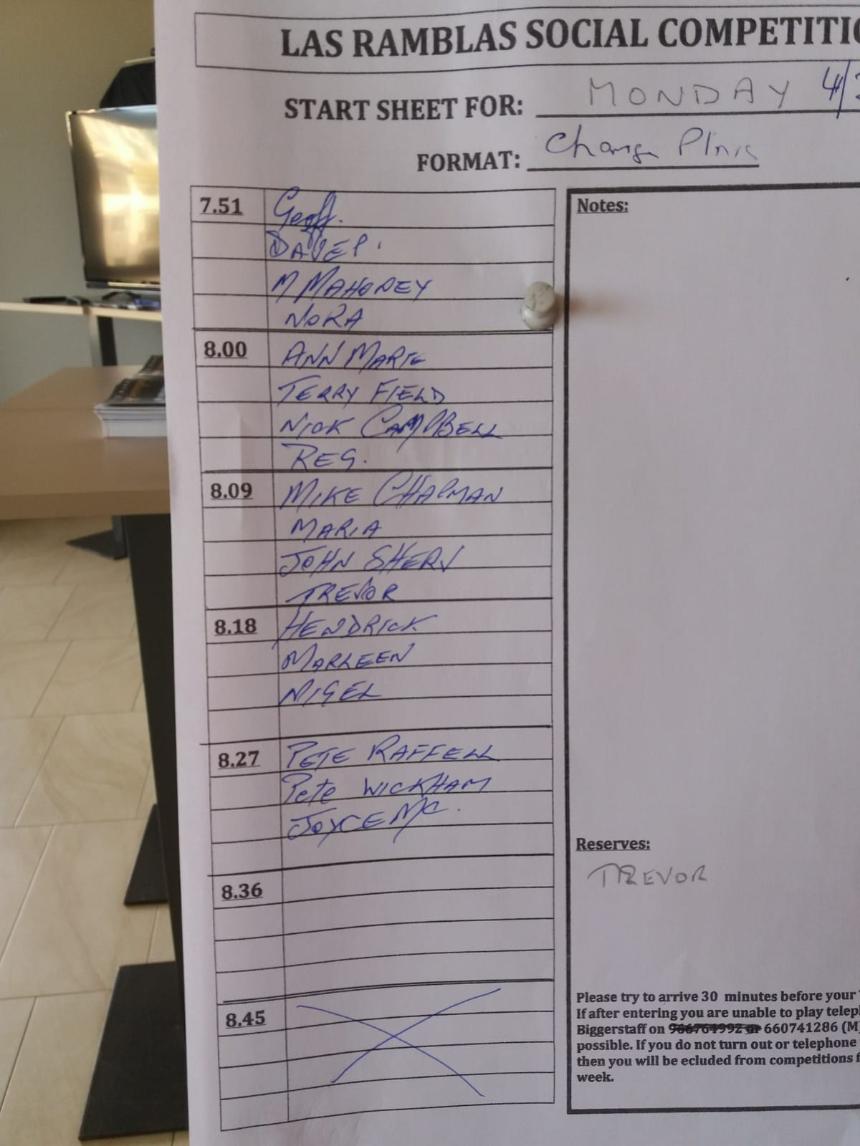 LAS RAMBLAS SOCIAL COMPETITIO
START SHEET FOR: MONDAY 4/3
FORMAT:
7.51 Geoff.
DAVE P.
M MAHONEY
NORA
8.00 ANN MARIE
TERRY FIELD
NICK CAMPBELL
REG.
8.09 MIKE CHAPMAN
MARIA
JOHN SHERV
TREVOR
8.18 HENDRICK
MARLEEN
NIGEL
8.27 PETE RAFFELL
Pete WICKHAM
JOYCE MC.
8.36
8.45
Notes:
Reserves:
TREVOR
Please try to arrive 30 minutes before your
If after entering you are unable to play telep
Biggerstaff on 966764992 or 660741286 (M
possible. If you do not turn out or telephone
then you will be ecluded from competitions f
week.